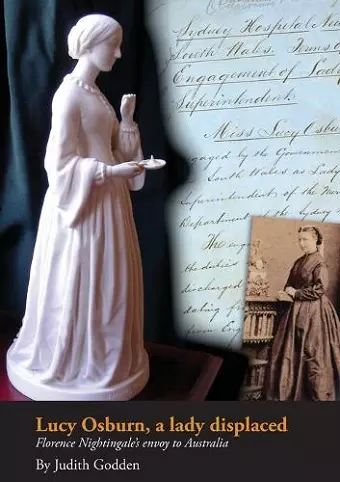 Sydney Hospital New
South Wales. Terms of
Engagement of Lady
Superintendent
Miss Lucy Osbu
gaged by the Governmen
South Wales as Lady
Superintendent of the Nur
Department of the Sydney
The eng
the duties
discharged
dating f
from
Lucy Osburn, a lady displaced
Florence Nightingale's envoy to Australia
By Judith Godden